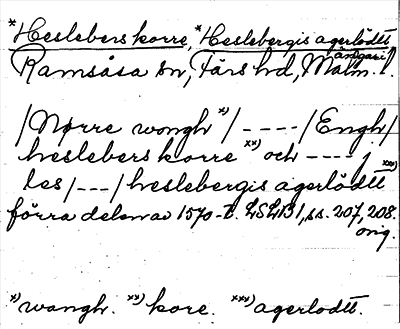 *Hesleberskorre, *Heslebergis agerlödtt
(ängar)
Ramsåsa sn, Färs hd, Malm. l.
/Nørre wongh *)/ ---- /Engh/
hesleberskorre **) och ---- /
les/---/heslebergis agerlödtt ***)
förra delen av 1570-t. LSLB1, ss. 207, 208.
orig.
*) wangh. **) kore. ***) agerlodtt.